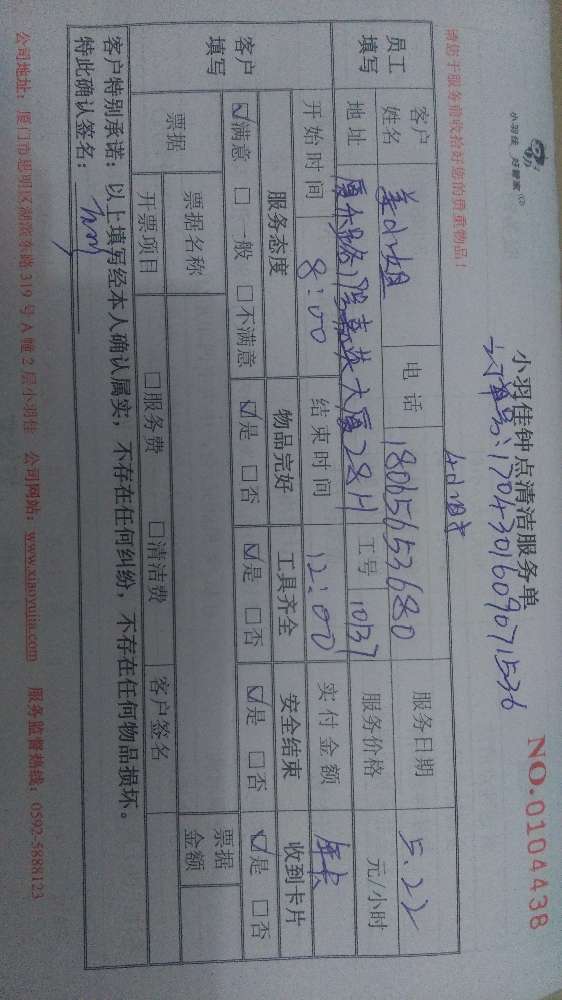 小羽佳 好管家
小羽佳钟点清洁服务单
NO.0104438
订单号:1704301609071536
请您于服务前收拾好您的贵重物品!
4小时
员工填写
客户姓名 姜小姐 电话 18065653680 服务日期 5.22
地址 大厦28H 工号 1037 服务价格 元/小时
开始时间 8:00 结束时间 12:00 实付金额 年卡
客户填写
服务态度 物品完好 工具齐全 安全结束 收到卡片
☑满意 □一般 □不满意 ☑是 □否 ☑是 □否 ☑是 □否 ☑是 □否
票据 票据名称 票据金额
开票项目 □服务费 □清洁费 客户签名
客户特别承诺:以上填写经本人确认属实,不存在任何纠纷,不存在任何物品损坏。
特此确认签名:
公司地址:厦门市思明区湖滨东路319号A幢2层小羽佳 公司网站:www.xiaoyujia.com 服务监督热线:0592-5888123